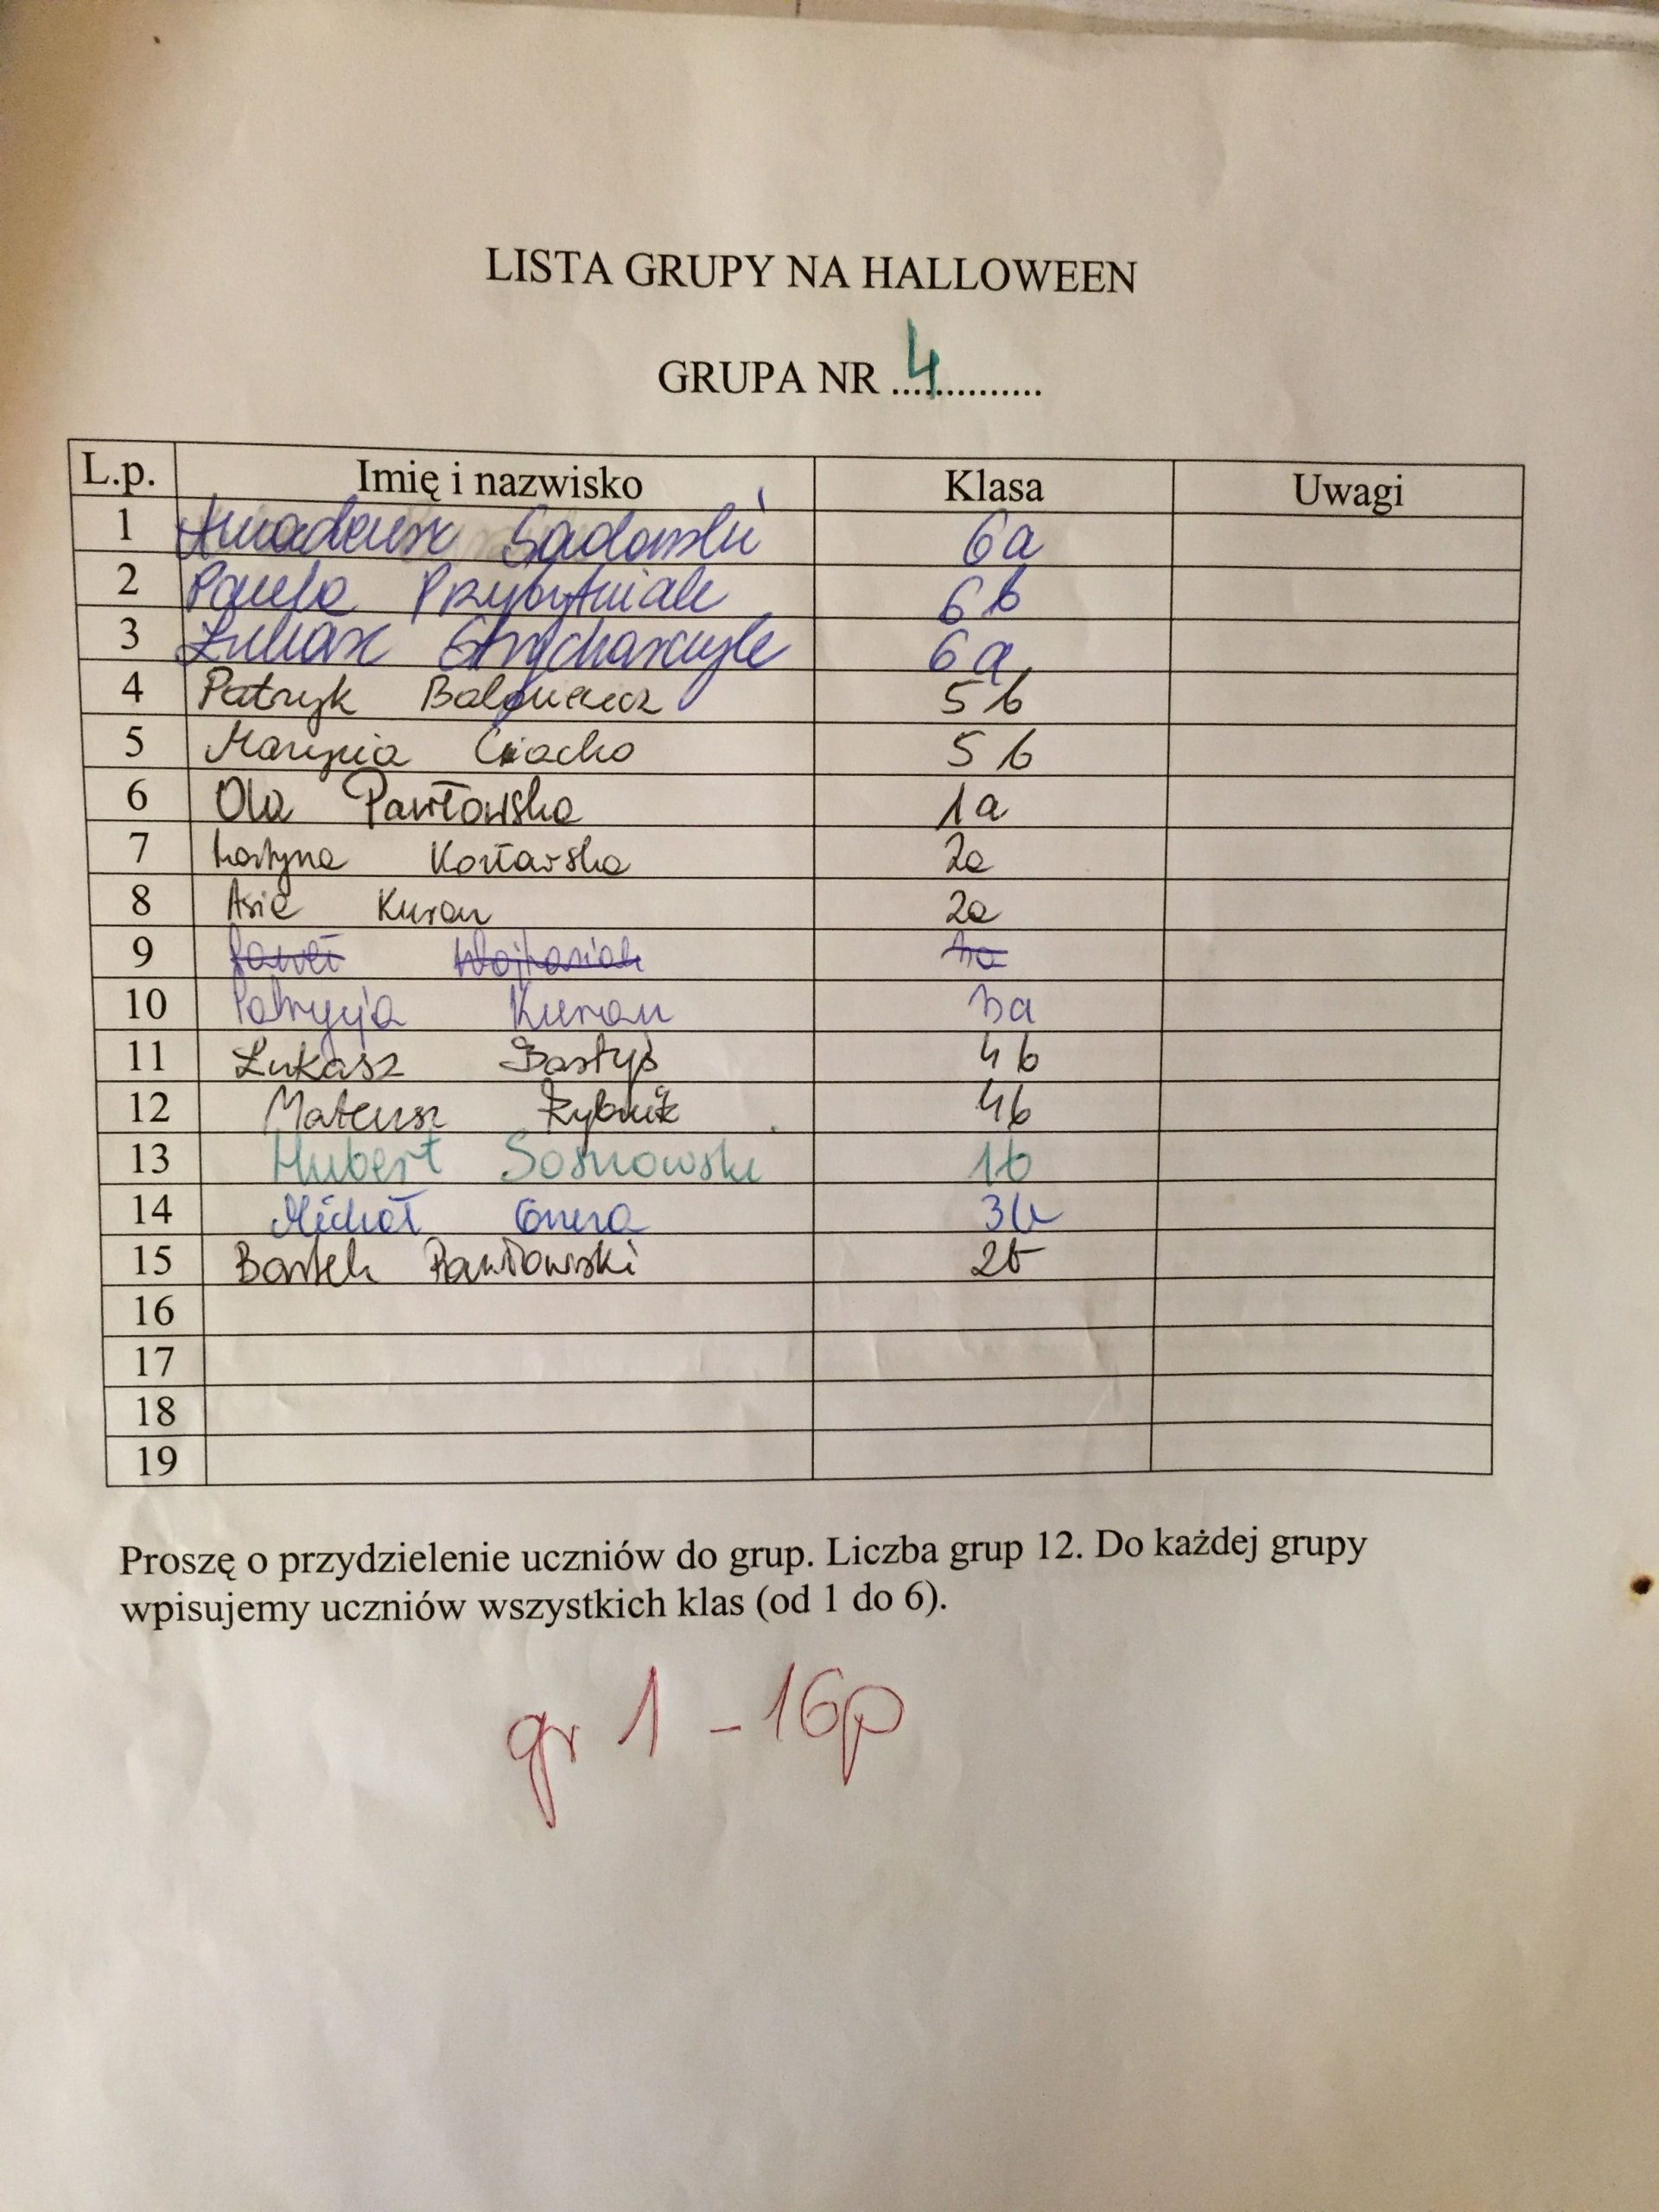 LISTA GRUPY NA HALLOWEEN
GRUPA NR ....4..........
L.p. Imię i nazwisko Klasa Uwagi
1 Amadeusz Sadowski 6a
2 Paula Przybytniak 6b
3 Łukasz Strycharczyk 6a
4 Patryk 5b
5 Marysia Ciacho 5b
6 Ola Pawłowska 1a
7 2a
8 Asia Kuran 2a
9 Paweł
10 Patrycja Kuran 3a
11 Łukasz Bastyś 4b
12 Mateusz 4b
13 Hubert Sosnowski 1b
14 Michał 3b
15 Bartek Pawłowski 2b
16
17
18
19
Proszę o przydzielenie uczniów do grup. Liczba grup 12. Do każdej grupy
wpisujemy uczniów wszystkich klas (od 1 do 6).
gr 1 - 16p